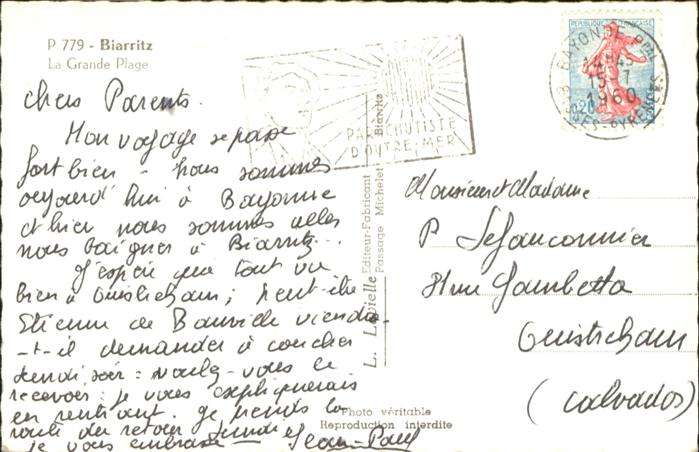 P 779 - Biarritz
La Grande Plage
Chers Parents.
Mon voyage se passe
fort bien - Nous sommes
aujourd'hui à Bayonne
et hier nous sommes allés
nous baigner à Biarritz...
J'espère que tout va
bien à Ouistreham ; peut-être
Etienne de Banville viendra
-t-il demander à coucher
lundi soir : voulez-vous le
recevoir : je vous expliquerais
en rentrant. Je prends la
route du retour lundi
je vous embrasse Jean-Paul
PARACHUTISTE
D'OUTRE-MER
REPUBLIQUE FRANÇAISE
0,20
BAYONNE Ppal
14H45
15-7
1960
BSES-PYRENEES
L. Editeur-Fabricant
Passage Michelet Biarritz
Monsieur et Madame
P. Lefauconnier
rue Gambetta
Ouistreham
(Calvados)
Photo véritable
Reproduction interdite